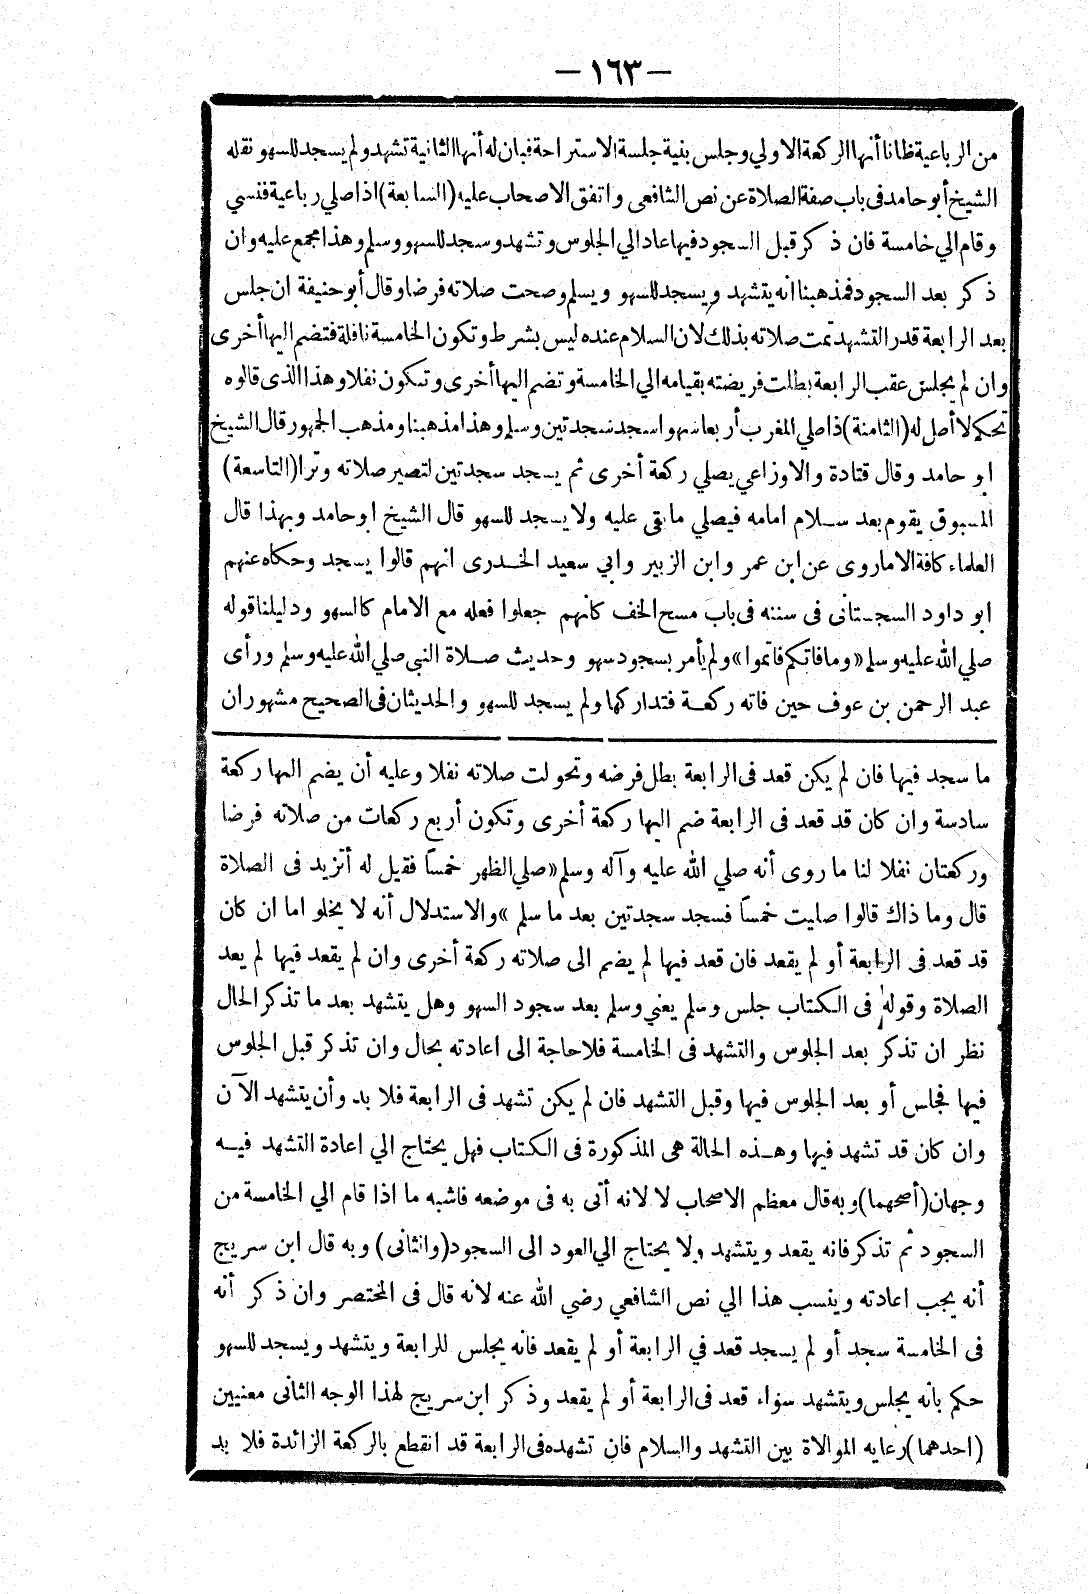 — ١٦٣ —
من الرباعية ظانا أنها الركعة الاولي وجلس بنية جلسة الاستراحة فبان له أنها الثانية تشهد ولم يسجد للسهو نقله
الشيخ أبو حامد فى باب صفة الصلاة عن نص الشافعى واتفق الاصحاب عليه (السابعة) اذا صلي رباعية فنسي
وقام الي خامسة فان ذكر قبل السجود فيها عاد الي الجلوس وتشهد وسجد للسهو وسلم وهذا مجمع عليه وان
ذكر بعد السجود فمذهبنا انه يتشهد ويسجد للسهو ويسلم وصحت صلاته فرضا وقال أبو حنيفة ان جلس
بعد الرابعة قدر التشهد تمت صلاته بذلك لان السلام عنده ليس بشرط وتكون الخامسة نافلة فتضم اليها أخرى
وان لم يجلس عقب الرابعة بطلت فريضته بقيامه الي الخامسة وتضم اليها أخرى وتكون نفلا وهذا الذى قالوه
تحكم لا أصل له (الثامنة) اذا صلي المغرب أربعا سهوا سجد سجدتين وسلم وهذا مذهبنا ومذهب الجمهور قال الشيخ
ابو حامد وقال قتادة والاوزاعي يصلي ركعة أخرى ثم يسجد سجدتين لتصير صلاته وترا (التاسعة)
المسبوق يقوم بعد سلام امامه فيصلي ما بقى عليه ولا يسجد للسهو قال الشيخ ابو حامد وبهذا قال
العلماء كافة الا ما روى عن ابن عمر وابن الزبير وابي سعيد الخدرى انهم قالوا يسجد وحكاه عنهم
ابو داود السجستانى فى سننه فى باب مسح الخف كانهم جعلوا فعله مع الامام كالسهو ودليلنا قوله
صلي الله عليه وسلم «وما فاتكم فاتموا» ولم يأمر بسجود سهو وحديث صلاة النبي صلي الله عليه وسلم ورأى
عبد الرحمن بن عوف حين فاته ركعة فتداركها ولم يسجد للسهو والحديثان فى الصحيح مشهوران
ما سجد فيها فان لم يكن قعد فى الرابعة بطل فرضه وتحولت صلاته نفلا وعليه أن يضم اليها ركعة
سادسة وان كان قد قعد فى الرابعة ضم اليها ركعة أخرى وتكون أربع ركعات من صلاته فرضا
وركعتان نفلا لنا ما روى أنه صلي الله عليه وآله وسلم «صلي الظهر خمسا فقيل له أتزيد فى الصلاة
قال وما ذاك قالوا صليت خمسا فسجد سجدتين بعد ما سلم» والاستدلال أنه لا يخلو اما ان كان
قد قعد فى الرابعة أو لم يقعد فان قعد فيها لم يضم الى صلاته ركعة أخرى وان لم يقعد فيها لم يعد
الصلاة وقوله فى الكتاب جلس وسلم يعني وسلم بعد سجود السهو وهل يتشهد بعد ما تذكر الحال
نظر ان تذكر بعد الجلوس والتشهد فى الخامسة فلا حاجة الى اعادته بحال وان تذكر قبل الجلوس
فيها فجلس أو بعد الجلوس فيها وقبل التشهد فان لم يكن تشهد فى الرابعة فلا بد وأن يتشهد الآن
وان كان قد تشهد فيها وهذه الحالة هى المذكورة فى الكتاب فهل يحتاج الي اعادة التشهد فيه
وجهان (أصحهما) وبه قال معظم الاصحاب لا لانه أتى به فى موضعه فاشبه ما اذا قام الي الخامسة من
السجود ثم تذكر فانه يقعد ويتشهد ولا يحتاج الي العود الى السجود (والثانى) وبه قال ابن سريج
أنه يجب اعادته وينسب هذا الي نص الشافعي رضي الله عنه لانه قال فى المختصر وان ذكر أنه
فى الخامسة سجد أو لم يسجد قعد في الرابعة أو لم يقعد فانه يجلس للرابعة ويتشهد ويسجد للسهو
حكم بانه يجلس ويتشهد سواء قعد فى الرابعة أو لم يقعد وذكر ابن سريج لهذا الوجه الثانى معنيين
(احدهما) رعايه الموالاة بين التشهد والسلام فان تشهده فى الرابعة قد انقطع بالركعة الزائدة فلا بد